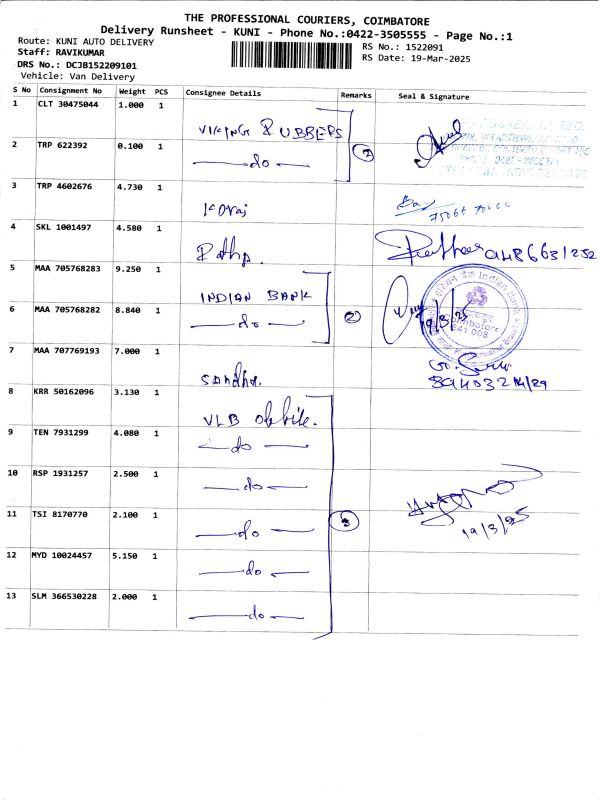 THE PROFESSIONAL COURIERS, COIMBATORE
Delivery Runsheet - KUNI - Phone No.:0422-3505555 - Page No.:1
Route: KUNI AUTO DELIVERY
RS No.: 1522091
Staff: RAVIKUMAR
RS Date: 19-Mar-2025
DRS No.: DCJB152209101
Vehicle: Van Delivery
S No Consignment No Weight PCS Consignee Details Remarks Seal & Signature
1 CLT 30475044 1.000 1 VIKING RUBBERS
2 TRP 622392 0.100 1 do
3 TRP 4602676 4.730 1
4 SKL 1001497 4.580 1
5 MAA 705768283 9.250 1 INDIAN BANK
6 MAA 705768282 8.840 1 do 2 19/3/25
Indian Bank
Coimbatore
641 008
7 MAA 707769193 7.000 1
8 KRR 50162096 3.130 1 VLB
9 TEN 7931299 4.080 1 do
10 RSP 1931257 2.500 1 do
11 TSI 8170770 2.100 1 do 19/3/25
12 MYD 10024457 5.150 1 do
13 SLM 366530228 2.000 1 do